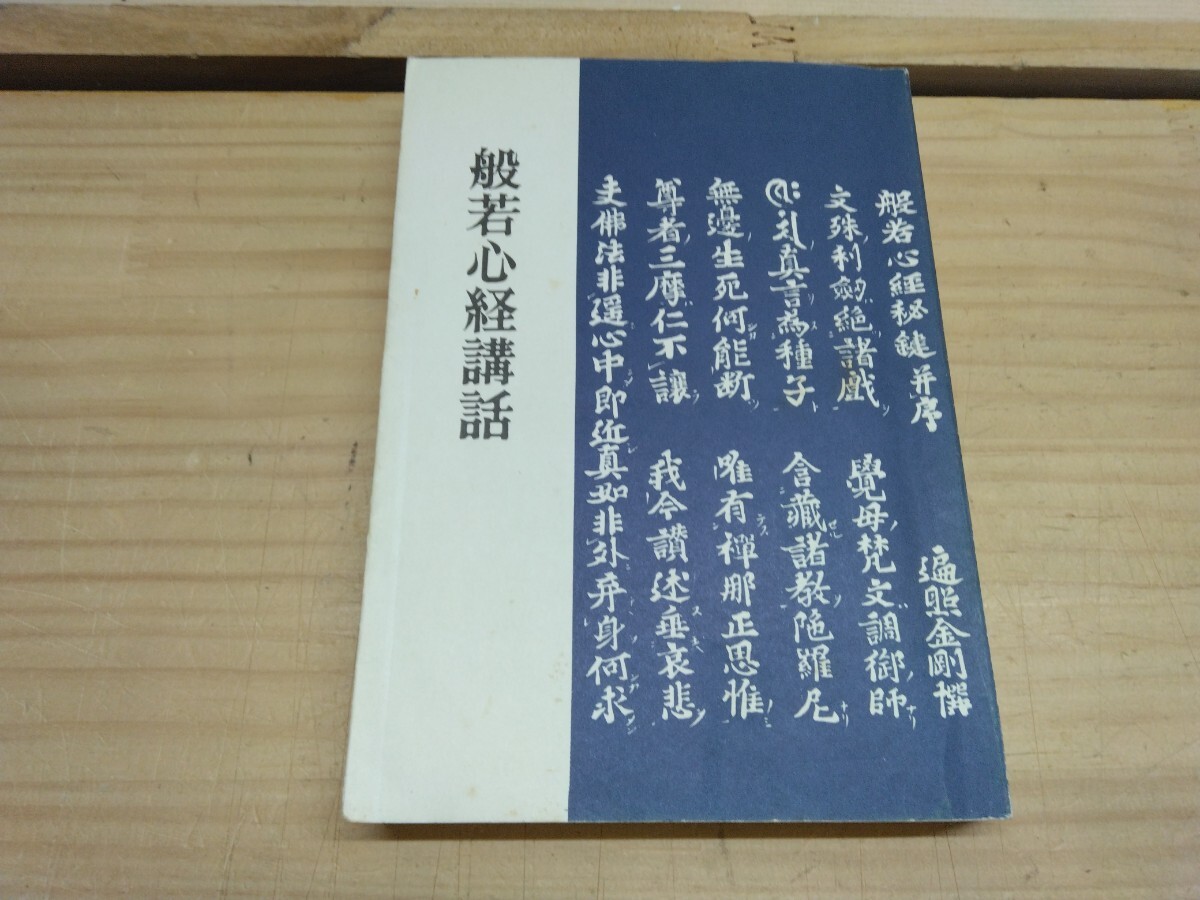 般若心経講話
般若心經秘鍵 并序
遍照金剛撰
文殊利劔絶諸戯 覺母梵文調御師
真言為種子 含藏諸教陁羅尼
無邊生死何能断 唯有禪那正思惟
尊者三摩仁不讓 我今讃述垂哀悲
夫佛法非遥心中即近真如非外弃身何求